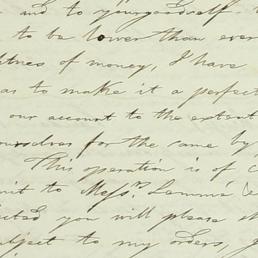 and to yourgoodself
to be lower than ever
of money, I have
as to make it a perfect
our account to the extent
ourselves for the same by
This operation is of
to Messrs.
you will please
subject to my orders,